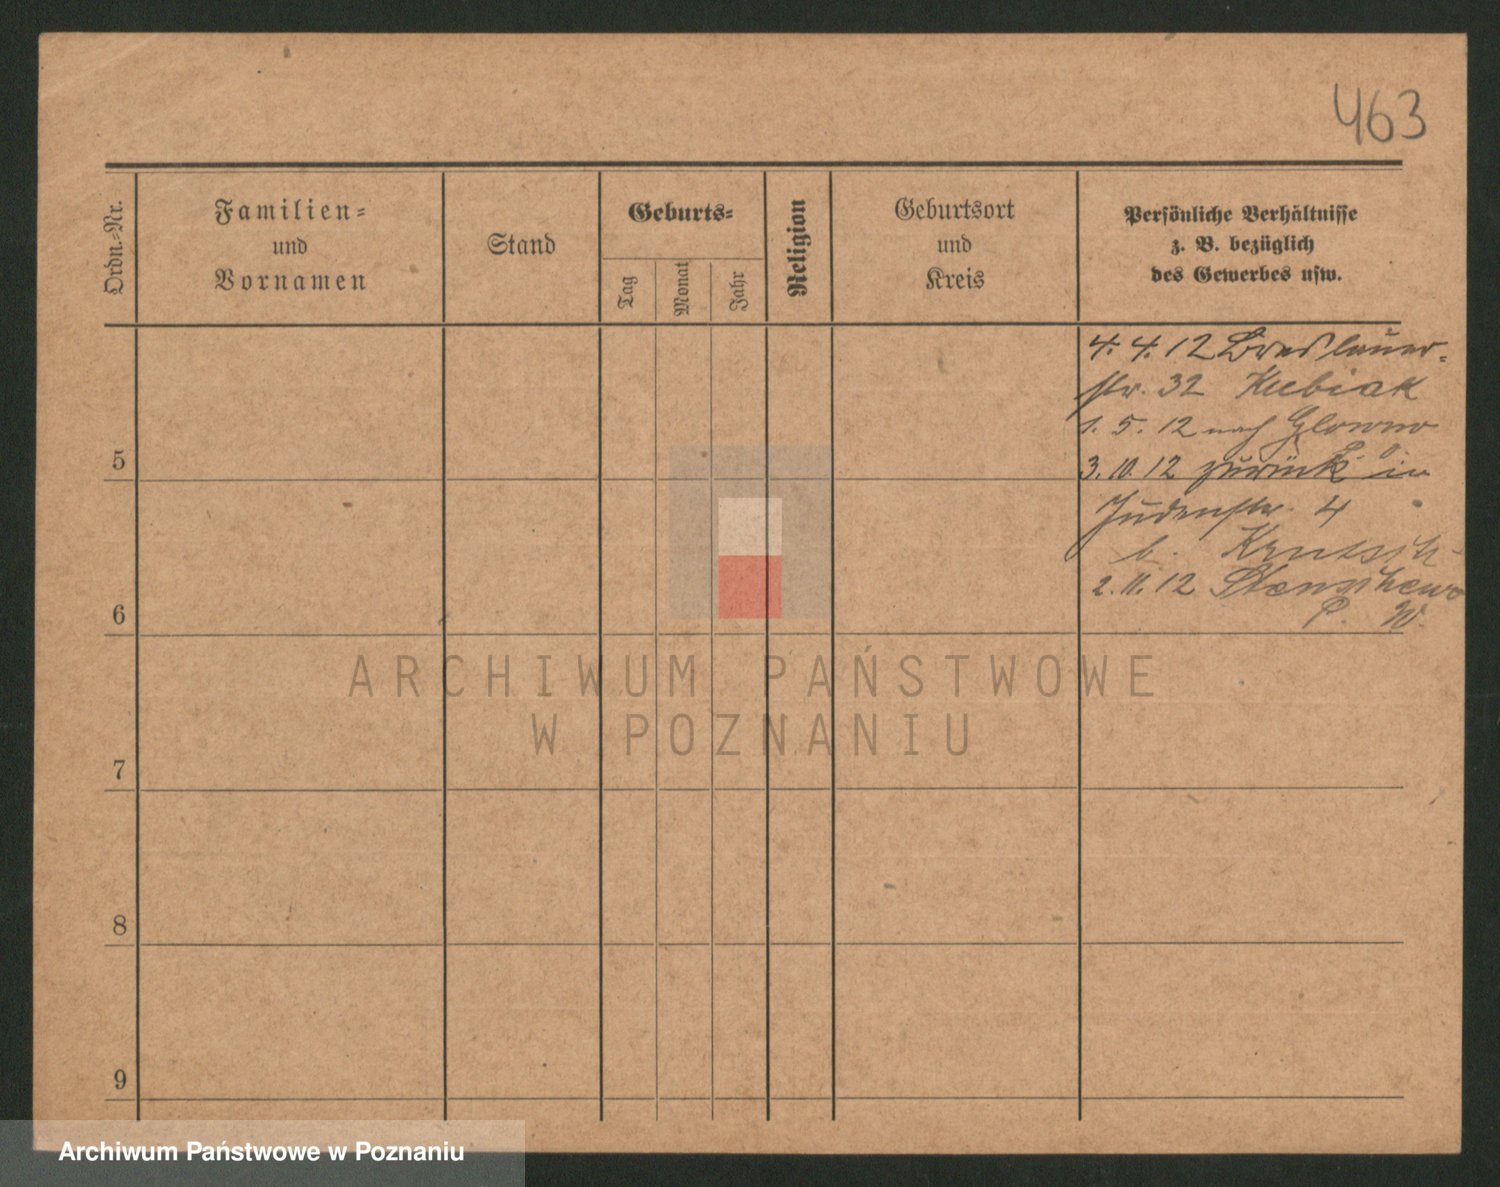 463
Ordn.-Nr.
Familien-
und
Vornamen
Stand
Geburts-
Tag
Monat
Jahr
Religion
Geburtsort
und
Kreis
Persönliche Verhältnisse
z. B. bezüglich
des Gewerbes usw.
4. 4. 12 Breslauer-
str. 32 Kubiak
1. 5. 12 nach Glowno
P. O.
5
3. 10. 12 zurück in
Judenstr. 4
b.
2. 11. 12
P. W.
6
7
8
9
ARCHIWUM PAŃSTWOWE
W POZNANIU
Archiwum Państwowe w Poznaniu